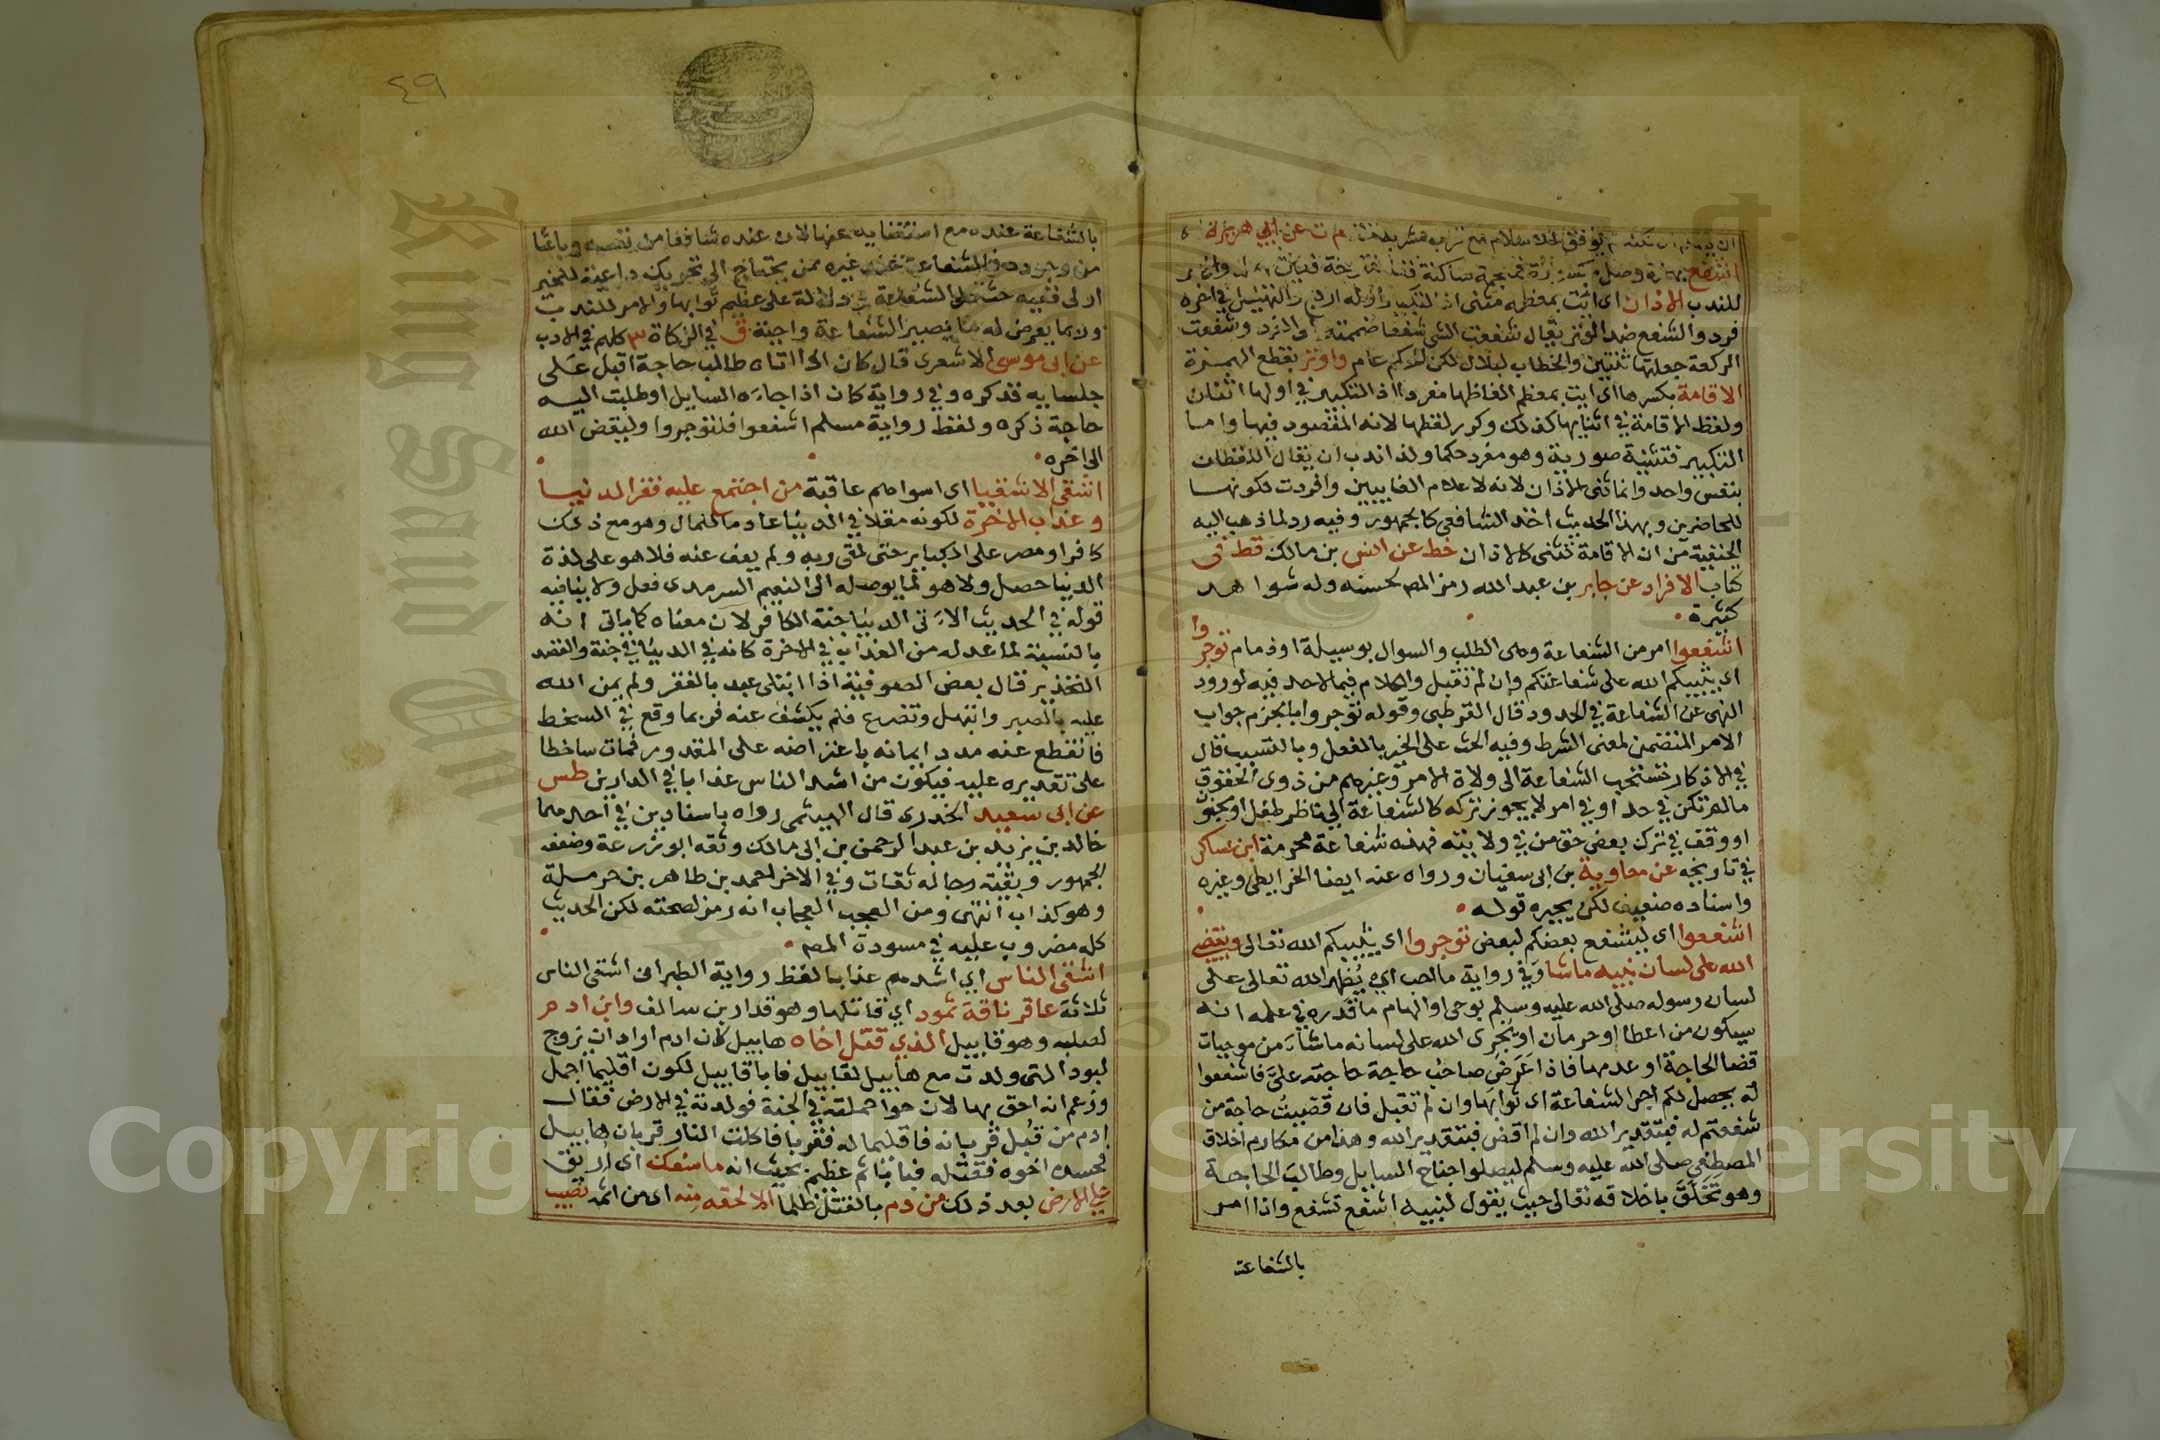 م ت عن ابي هريرة
اشفع بهمزة وصل
للندب الاذان اى ائت بمعظمه مثنى اذ التكبير في اوله اربع والتهليل في اخره
فرد والشفع ضد الوتر يقال شفعت الشى شفعا ضممته الى الفرد وشفعت
الركعة جعلتها ثنتين والخطاب لبلال لكن الحكم عام واوتر بقطع الهمزة
الاقامة بكسرها اى ايت بمعظم الفاظها مفردا اذ التكبير في اولها اثنان
ولفظ الاقامة في اثنايها كذلك وكرر لفظها لانه المقصود فيها واما
التكبير فتثنيته صورية وهو مفرد حكما ولذا ندب ان يقال اللفظان
بنفس واحد وانما ثنى الاذان لانه لاعلام الغايبين وافردت لكونها
للحاضرين وبهذا الحديث اخذ الشافعى كالجمهور وفيه رد لما ذهب اليه
الحنفية من ان الاقامة تثنى كالاذان خط عن انس بن مالك قط فى
كتاب الافراد عن جابر بن عبد الله رمز المص لحسنه وله شواهد
كثيرة
اشفعوا امر من الشفاعة وهى الطلب والسوال بوسيلة او ذمام توجروا
اى يثيبكم الله على شفاعتكم وان لم تقبل والكلام فيما لاحد فيه لورود
النهى عن الشفاعة في الحدود قال القرطبى وقوله توجروا بالجزم جواب
الامر المتضمن لمعنى الشرط وفيه الحث على الخير بالفعل وبالتسبب قال
في الاذكار تستحب الشفاعة الى ولاة الامر وغيرهم من ذوى الحقوق
مالم تكن في حد او في امر لا يجوز تركه كالشفاعة الى ناظر طفل او مجنون
او وقف في ترك بعض حق من في ولايته فهذه شفاعة محرمة ابن عساكر
في تاريخه عن معاوية بن ابى سفيان ورواه عنه ايضا الخرايطى وغيره
واسناده ضعيف لكن يجبره قوله
اشفعوا اى ليشفع بعضكم لبعض توجروا اى يثيبكم الله تعالى ويقضى
الله على لسان نبيه ماشا وفي رواية ما احب اى يُظهر الله تعالى على
لسان رسوله صلى الله عليه وسلم بوحى او الهام ما قدره في علمه انه
سيكون من اعطا او حرمان او يُجرى الله على لسانه ما شاء من موجبات
قضا الحاجة او عدمها فاذا عَرَضَ صاحب حاجة حاجته علىّ فاشفعوا
له يحصل لكم اجر الشفاعة اى ثوابها وان لم تقبل فان قضيتُ حاجة من
شفعتم له فبتقدير الله وان لم اقض فبتقدير الله وهذا من مكارم اخلاق
المصطفى صلى الله عليه وسلم ليصلوا جناح السايل وطالب الحاجة
وهو تَخَلَّقَ باخلاقه تعالى حيث يقول لنبيه اشفع تشفع واذا امر
بالشفاعة
٤٩
بالشفاعة عنده مع استغنايه عنها لان عنده شافعا من نفسه وباعثا
من وجوده فالشفاعة عند غيره ممن يحتاج الى تحريك داعية للخير
اولى ففيه حث على الشفاعة ودلالة على عظيم ثوابها والامر للندب
وربما يعرض له ما يصير الشفاعة واجبة ق في الزكاة ٣ كلهم في الادب
عن ابى موسى الاشعرى قال كان اذا اتاه طالب حاجة اقبل على
جلسايه فذكره وفي رواية كان اذا جاءه السايل او طلبت اليه
حاجة ذكره ولفظ رواية مسلم اشفعوا فلتوجروا وليقض الله
الى اخره
اشقى الاشقيا اى اسواهم عاقبة من اجتمع عليه فقر الدنيا
وعذاب الاخرة لكونه مقلا في الدنيا عادما للمال وهو مع ذلك
كافر او مصر على الكباير حتى لقى ربه ولم يعف عنه فلا هو على لذة
الدنيا حصل ولا هو لما يوصله الى النعيم السرمدى فعل ولا ينافيه
قوله في الحديث الاتى الدنيا جنة الكافر لان معناه كما ياتى انه
بالنسبة لما عد له من العذاب في الاخرة كانه في الدنيا في جنة والقصد
التحذير قال بعض الصوفية اذا ابتلى عبد بالفقر ولم يمن الله
عليه بالصبر وابتهل وتضرع فلم يكشف عنه فربما وقع في السخط
فانقطع عنه مدد ايمانه باعتراضه على المقدور فمات ساخطا
على تقديره عليه فيكون من اشد الناس عذابا في الدارين طس
عن ابى سعيد الخدرى قال الهيثمى رواه باسنادين في احدهما
خالد بن يزيد بن عبد الرحمن بن ابى مالك وثقه ابو زرعة وضعفه
الجمهور وبقية رجاله ثقات وفي الاخر احمد بن طاهر بن حرملة
وهو كذاب انتهى ومن العجب العجاب انه رمز لصحته لكن الحديث
كله مضروب عليه في مسودة المص
اشقى الناس اي اشدهم عذابا لفظ رواية الطبرانى اشقى الناس
ثلاثة عاقر ناقة ثمود اي قاتلها وهو قدار بن سالف وابن ادم
لصلبه وهو قابيل الذي قتل اخاه هابيل كان ادم اراد ان يزوج
لبودا التى ولدت مع هابيل لقابيل فابا قابيل لكون اقليما اجمل
وزعم انه احق بها لان حوا حملته في الجنة فولدته في الارض فقال
ادم من قُبل قربانه فاقليما له فقربا فاكلت النار قربان هابيل
فحسده اخوه فقتله فبا باثم عظيم بحيث انه ما سفك اى اريق
في الارض بعد ذلك من دم بالقتل ظلما الا لحقه منه اى من اثمه نصيب